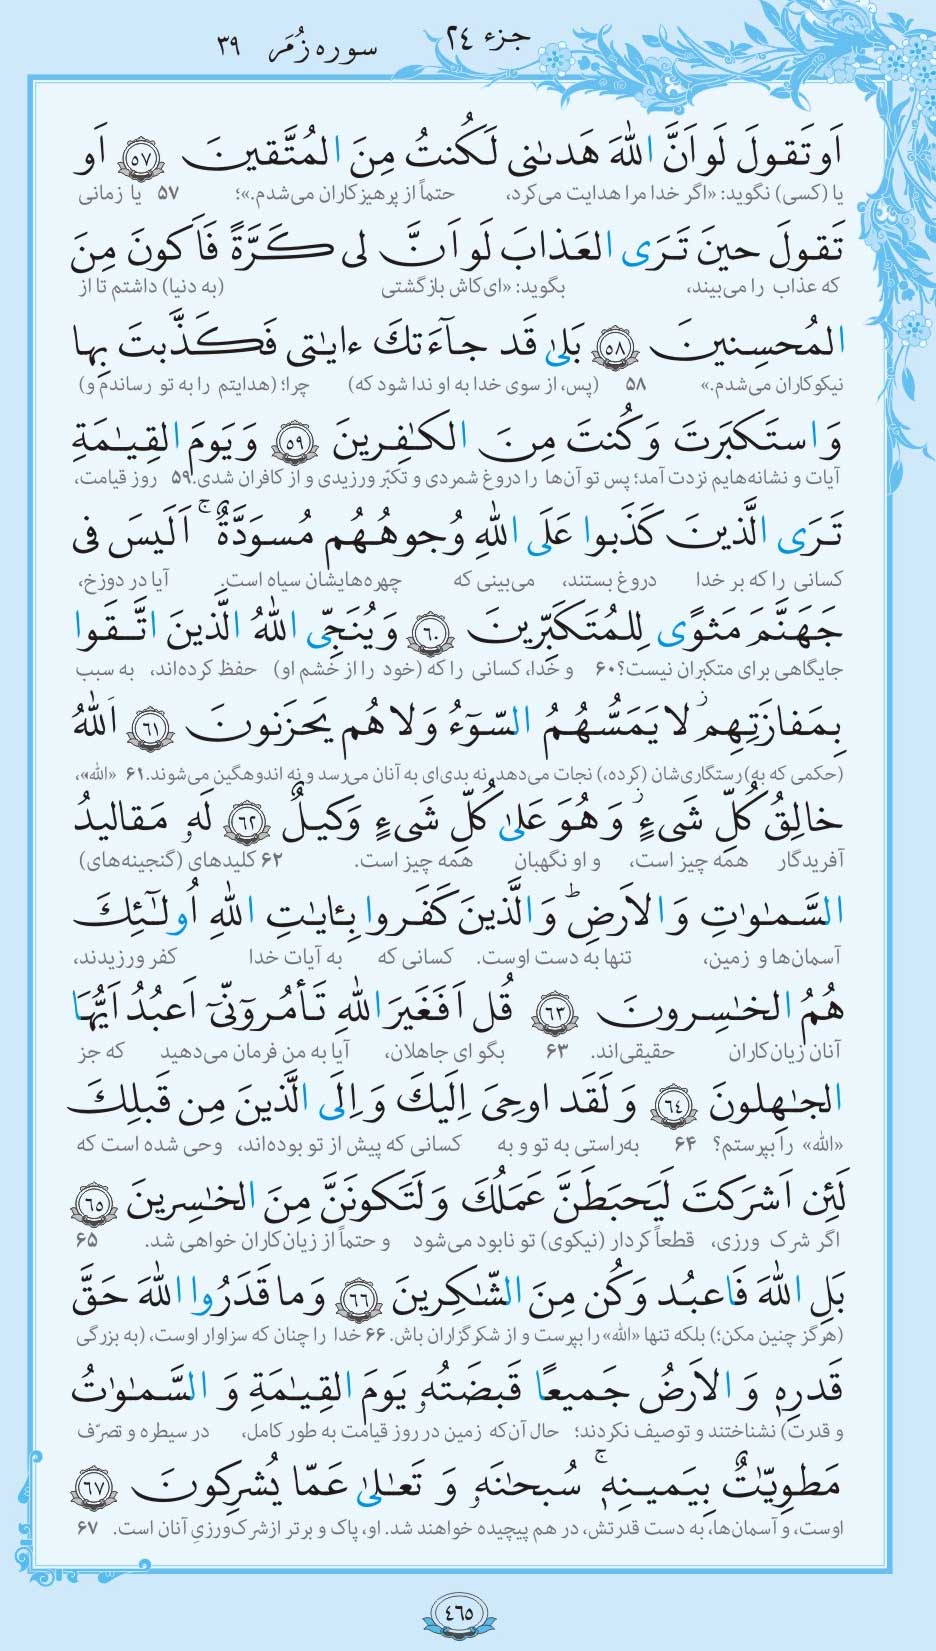 جزء ٢٤ سوره زُمَر ٣٩
اَو تَقولَ لَو اَنَّ اللّٰهَ هَدىٰنى لَكُنتُ مِنَ المُتَّقينَ ٥٧ اَو
یا (کسی) نگوید: «اگر خدا مرا هدایت می‌کرد، حتماً از پرهیزکاران می‌شدم.»؛ ۵۷ یا زمانی
تَقولَ حينَ تَرَى العَذابَ لَو اَنَّ لى كَرَّةً فَاَكونَ مِنَ
که عذاب را می‌بیند، بگوید: «ای‌کاش بازگشتی (به دنیا) داشتم تا از
المُحسِنينَ ٥٨ بَلىٰ قَد جاۤءَتكَ ءايٰتى فَكَذَّبتَ بِها
نیکوکاران می‌شدم.» ۵۸ (پس، از سوی خدا به او ندا شود که) چرا؛ (هدایتم را به تو رساندم و)
وَ استَكبَرتَ وَ كُنتَ مِنَ الكٰفِرينَ ٥٩ وَ يَومَ القِيٰمَةِ
آیات و نشانه‌هایم نزدت آمد؛ پس تو آن‌ها را دروغ شمردی و تکبّر ورزیدی و از کافران شدی. ۵۹ روز قیامت،
تَرَى الَّذينَ كَذَبوا عَلَى اللّٰهِ وُجوهُهُم مُسوَدَّةٌ ۚ اَلَيسَ فى
کسانی را که بر خدا دروغ بستند، می‌بینی که چهره‌هایشان سیاه است. آیا در دوزخ،
جَهَنَّمَ مَثوًى لِلمُتَكَبِّرينَ ٦٠ وَ يُنَجِّى اللّٰهُ الَّذينَ اتَّقَوا
جایگاهی برای متکبران نیست؟ ۶۰ و خدا، کسانی را که (خود را از خشم او) حفظ کرده‌اند، به سبب
بِمَفازَتِهِم ز لا يَمَسُّهُمُ السّوۤءُ وَ لا هُم يَحزَنونَ ٦١ اَللّٰهُ
(حکمی که به) رستگاری‌شان (کرده،) نجات می‌دهد. نه بدی‌ای به آنان می‌رسد و نه اندوهگین می‌شوند. ۶۱ «الله»،
خالِقُ كُلِّ شَىءٍ ز وَ هُوَ عَلىٰ كُلِّ شَىءٍ وَكيلٌ ٦٢ لَهٗ مَقاليدُ
آفریدگار همه چیز است، و او نگهبان همه چیز است. ۶۲ کلیدهای (گنجینه‌های)
السَّمٰوٰتِ وَ الاَرضِ ۗ وَ الَّذينَ كَفَروا بِـٔايٰتِ اللّٰهِ اُولٰۤئِكَ
آسمان‌ها و زمین، تنها به دست اوست. کسانی که به آیات خدا کفر ورزیدند،
هُمُ الخٰسِرونَ ٦٣ قُل اَفَغَيرَ اللّٰهِ تَأمُروۤنّىۤ اَعبُدُ اَيُّهَا
آنان زیان‌کاران حقیقی‌اند. ۶۳ بگو ای جاهلان، آیا به من فرمان می‌دهید که جز
الجٰهِلونَ ٦٤ وَ لَقَد اوحِىَ اِلَيكَ وَ اِلَى الَّذينَ مِن قَبلِكَ
«الله» را بپرستم؟ ۶۴ به‌راستی به تو و به کسانی که پیش از تو بوده‌اند، وحی شده است که
لَئِن اَشرَكتَ لَيَحبَطَنَّ عَمَلُكَ وَ لَتَكونَنَّ مِنَ الخٰسِرينَ ٦٥
اگر شرک ورزی، قطعاً کردار (نیکوی) تو نابود می‌شود و حتماً از زیان‌کاران خواهی شد. ۶۵
بَلِ اللّٰهَ فَاعبُد وَ كُن مِنَ الشّٰكِرينَ ٦٦ وَ ما قَدَرُوا اللّٰهَ حَقَّ
(هرگز چنین مکن؛) بلکه تنها «الله» را بپرست و از شکرگزاران باش. ۶۶ خدا را چنان که سزاوار اوست، (به بزرگی
قَدرِهٖ وَ الاَرضُ جَميعًا قَبضَتُهٗ يَومَ القِيٰمَةِ وَ السَّمٰوٰتُ
و قدرت) نشناختند و توصیف نکردند؛ حال آن‌که زمین در روز قیامت به طور کامل، در سیطره و تصرّف
مَطوِيّٰتٌ بِيَمينِهٖ ۚ سُبحٰنَهٗ وَ تَعٰلىٰ عَمّا يُشرِكونَ ٦٧
اوست، و آسمان‌ها، به دست قدرتش، در هم پیچیده خواهند شد. او، پاک و برتر از شرک‌ورزیِ آنان است. ۶۷
٤٦٥